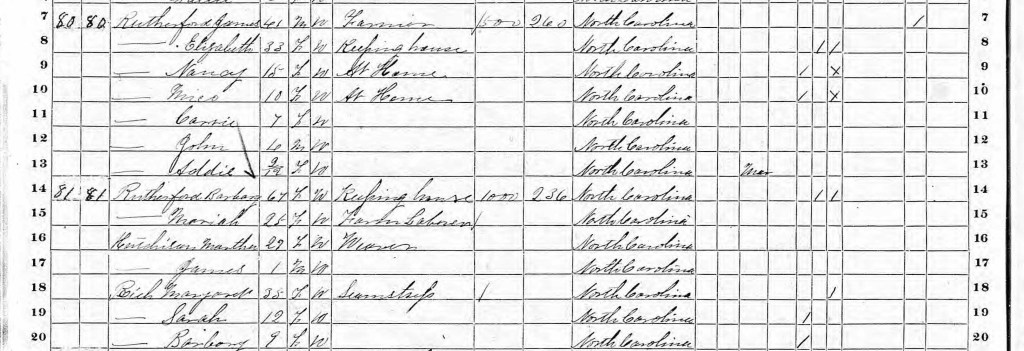 7 80 80 Rutherford James 41 M W Farmer 1500 260 North Carolina 1 7
8 — Elizabeth 33 F W Keeping house North Carolina 1 1 8
9 — Nancy 15 F W At Home North Carolina 1 X 9
10 — 10 F W At Home North Carolina 1 X 10
11 — Carrie 7 F W North Carolina 11
12 — John M W North Carolina 12
13 — Addie F W North Carolina Mar 13
14 81 81 Rutherford Barbary 67 F W Keeping house 1000 236 North Carolina 1 1 14
15 — Mariah 28 F W Farm Laborer North Carolina 15
16 Hutchison Marther 29 F W Weaver North Carolina 16
17 — James 1 M W North Carolina 17
18 Rich Margaret 38 F W Seamstress North Carolina 1 18
19 — Sarah 12 F W North Carolina 1 19
20 — Barbary 9 F W North Carolina 1 20